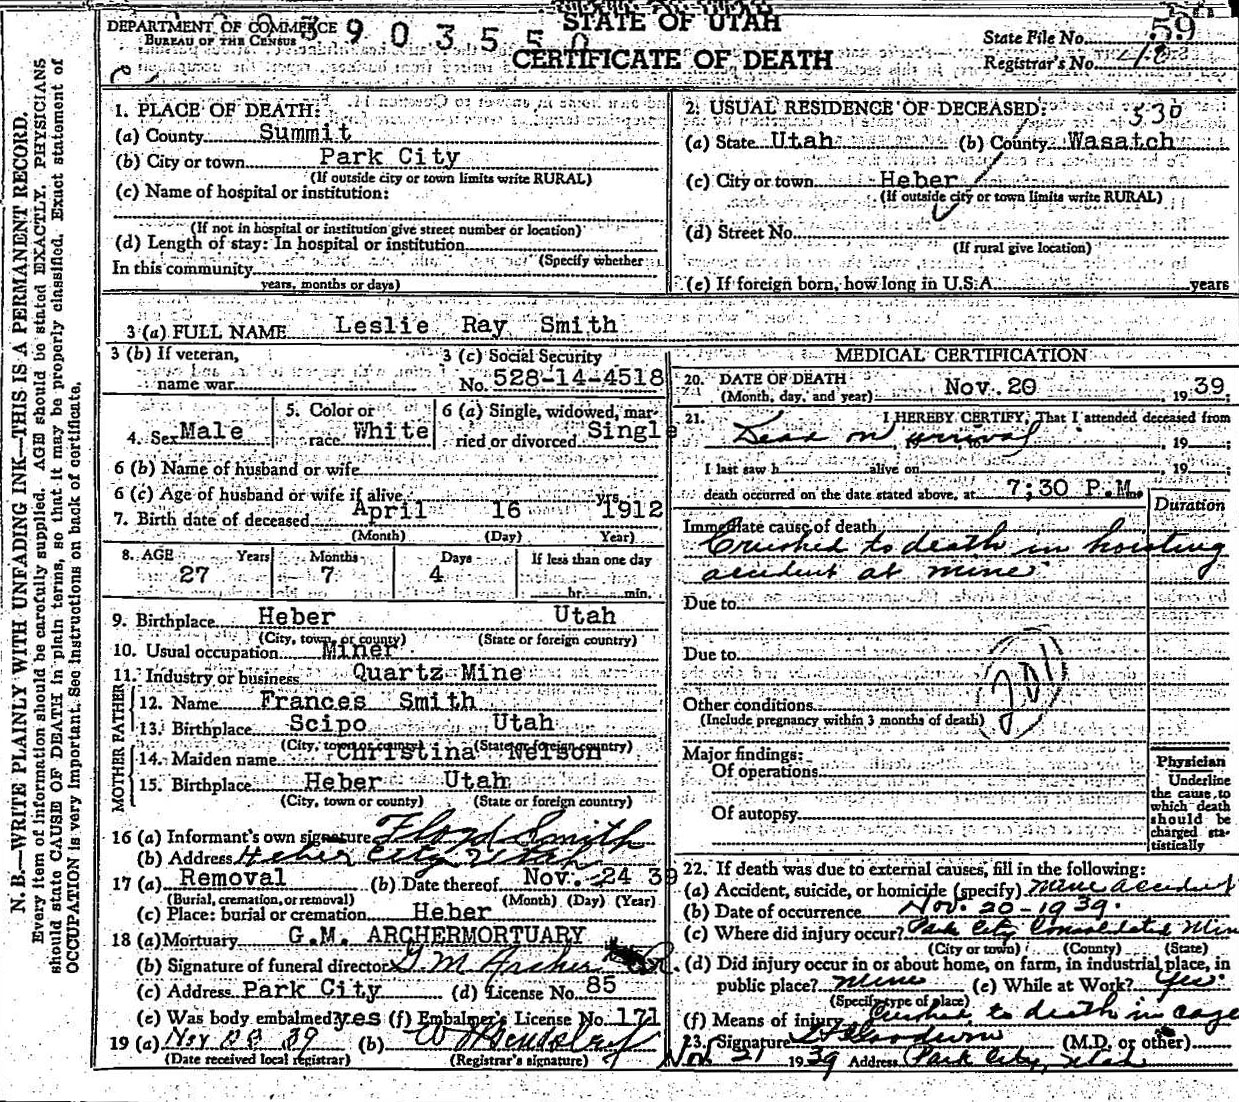 DEPARTMENT OF COMMERCE
BUREAU OF THE CENSUS
390355
STATE OF UTAH
CERTIFICATE OF DEATH
State File No. 59
Registrar's No. 48
N. B.—WRITE PLAINLY WITH UNFADING INK—THIS IS A PERMANENT RECORD.
Every item of information should be carefully supplied. AGE should be stated EXACTLY. PHYSICIANS
should state CAUSE OF DEATH in plain terms, so that it may be properly classified. Exact statement of
OCCUPATION is very important. See instructions on back of certificate.
1. PLACE OF DEATH:
(a) County Summit
(b) City or town Park City
(If outside city or town limits write RURAL)
(c) Name of hospital or institution:
(If not in hospital or institution give street number or location)
(d) Length of stay: In hospital or institution
(Specify whether
In this community
years, months or days)
2. USUAL RESIDENCE OF DECEASED: 530
(a) State Utah (b) County Wasatch
(c) City or town Heber
(If outside city or town limits write RURAL)
(d) Street No.
(If rural give location)
(e) If foreign born, how long in U.S.A. years
3 (a) FULL NAME Leslie Ray Smith
3 (b) If veteran,
name war
3 (c) Social Security
No. 528-14-4518
4. Sex Male
5. Color or
race White
6 (a) Single, widowed, mar-
ried or divorced Single
6 (b) Name of husband or wife
6 (c) Age of husband or wife if alive yrs.
7. Birth date of deceased April 16 1912
(Month) (Day) Year)
8. AGE Years Months Days If less than one day
27 7 4
hr. min.
9. Birthplace Heber Utah
(City, town, or county) (State or foreign country)
10. Usual occupation Miner
11. Industry or business Quartz Mine
FATHER
12. Name Frances Smith
13. Birthplace Scipo Utah
(City, town or county) (State or foreign country)
MOTHER
14. Maiden name Christina Nelson
15. Birthplace Heber Utah
(City, town or county) (State or foreign country)
16 (a) Informant's own signature Floyd Smith
(b) Address Heber City Utah
17 (a) Removal (b) Date thereof Nov. 24 39
(Burial, cremation, or removal) (Month) (Day) (Year)
(c) Place: burial or cremation Heber
18 (a) Mortuary G.M. ARCHERMORTUARY
(b) Signature of funeral director G M Archer
(c) Address Park City (d) License No. 85
(e) Was body embalmed? yes (f) Embalmer's License No. 171
19 (a) Nov 39 (b)
(Date received local registrar) (Registrar's signature)
MEDICAL CERTIFICATION
20. DATE OF DEATH
(Month, day, and year) Nov. 20 1939
21. I HEREBY CERTIFY, That I attended deceased from
Dead on arrival , 19 ;
I last saw h alive on , 19 ;
death occurred on the date stated above, at 7;30 P.M.
Duration
Immediate cause of death
Crushed to death in hoisting
accident at mine
Due to
Due to
201
Other conditions
(Include pregnancy within 3 months of death)
Major findings:
Of operations
Of autopsy
Physician
Underline
the cause to
which death
should be
charged sta-
tistically
22. If death was due to external causes, fill in the following:
(a) Accident, suicide, or homicide (specify) Mine accident
(b) Date of occurrence Nov. 20-1939.
(c) Where did injury occur? Park City Consolidated Min
(City or town) (County) (State)
(d) Did injury occur in or about home, on farm, in industrial place, in
public place? Mine (e) While at Work? Yes
(Specify type of place)
(f) Means of injury Crushed to death in cage
23. Signature (M.D. or other)
Nov. 21 1939 Address Park City, Utah